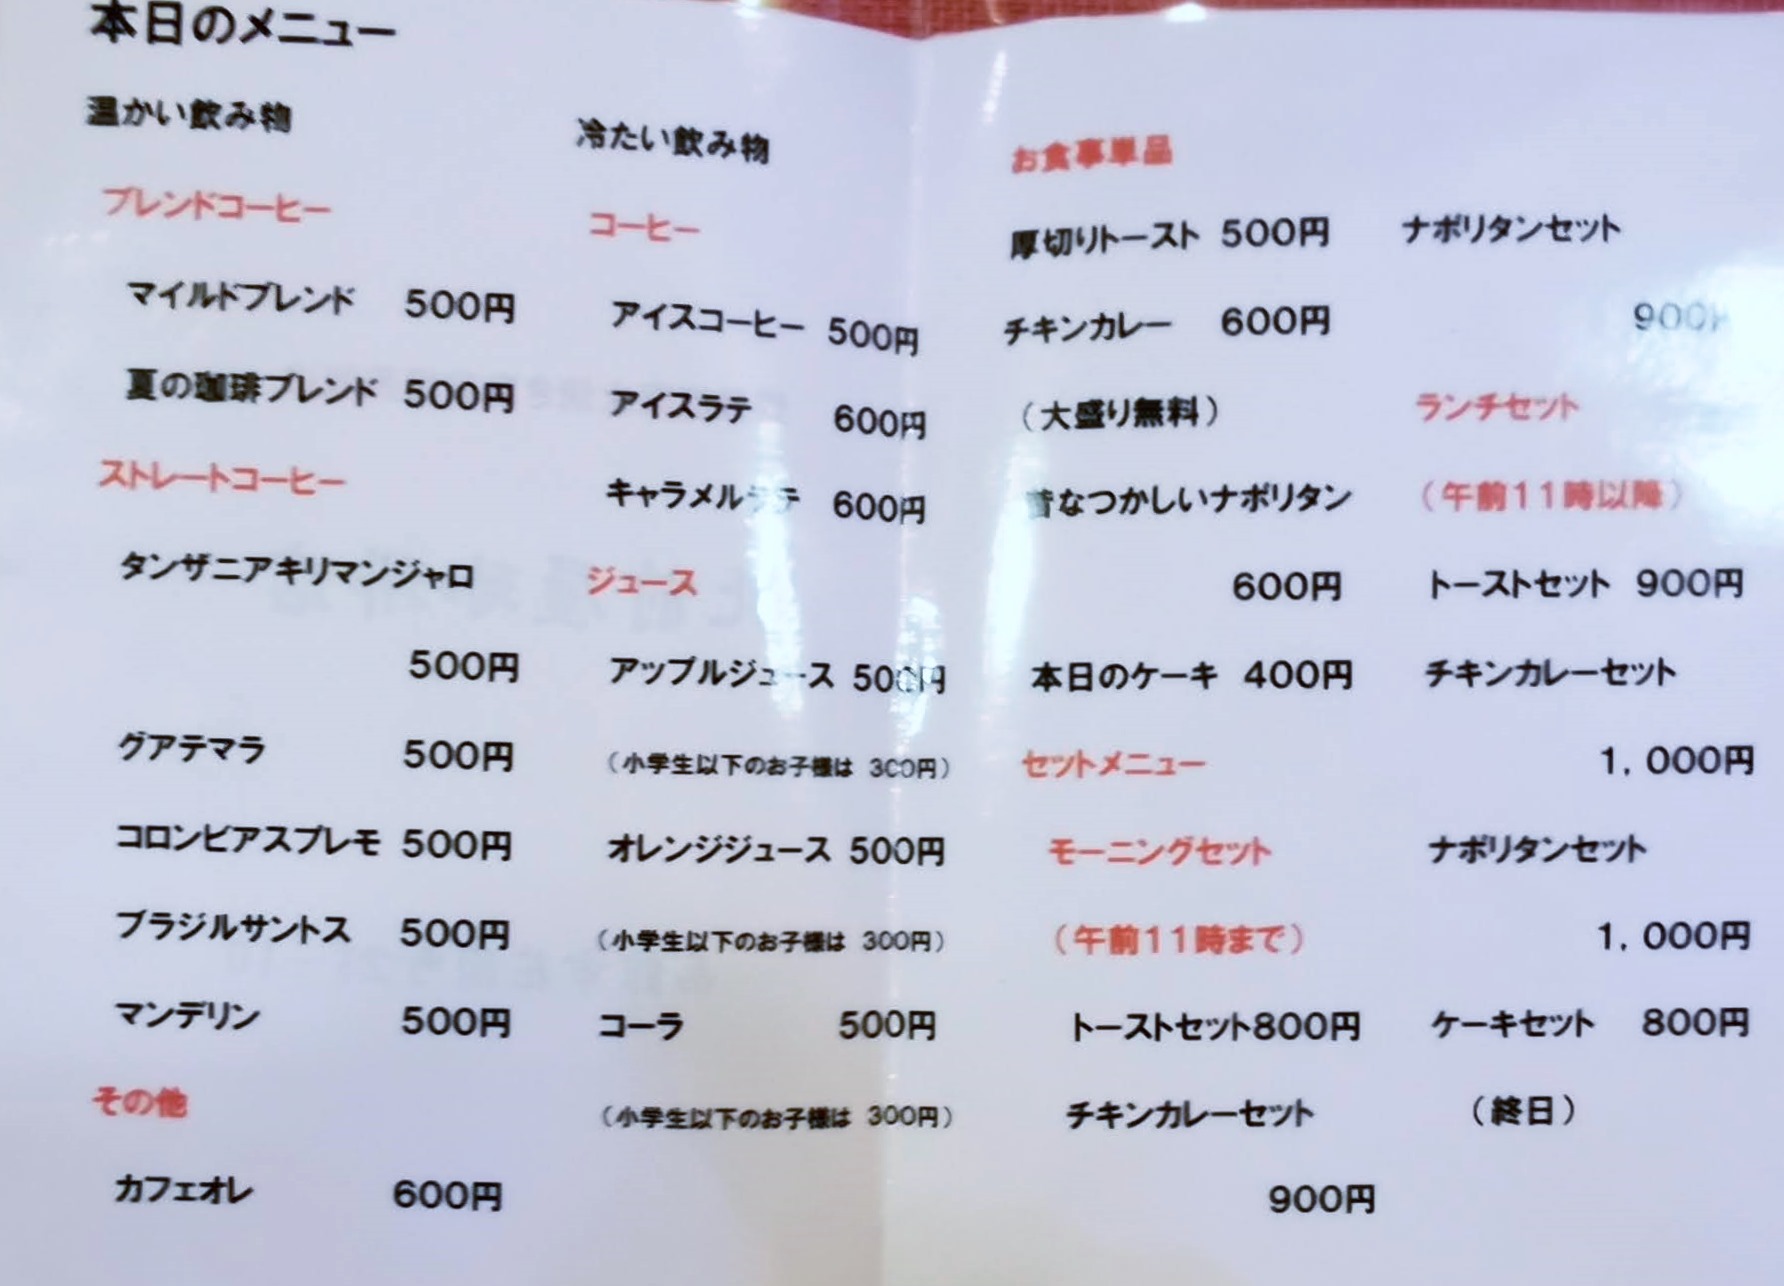 本日のメニュー
温かい飲み物
ブレンドコーヒー
マイルドブレンド 500円
夏の珈琲ブレンド 500円
ストレートコーヒー
タンザニアキリマンジャロ
500円
グアテマラ 500円
コロンビアスプレモ 500円
ブラジルサントス 500円
マンデリン 500円
その他
カフェオレ 600円
冷たい飲み物
コーヒー
アイスコーヒー 500円
アイスラテ 600円
キャラメルラテ 600円
ジュース
アップルジュース 500円
（小学生以下のお子様は 300円）
オレンジジュース 500円
（小学生以下のお子様は 300円）
コーラ 500円
（小学生以下のお子様は 300円）
お食事単品
厚切りトースト 500円
チキンカレー 600円
（大盛り無料）
昔なつかしいナポリタン
600円
本日のケーキ 400円
セットメニュー
モーニングセット
（午前11時まで）
トーストセット800円
チキンカレーセット
900円
ナポリタンセット
900円
ランチセット
（午前11時以降）
トーストセット 900円
チキンカレーセット
1,000円
ナポリタンセット
1,000円
ケーキセット 800円
（終日）